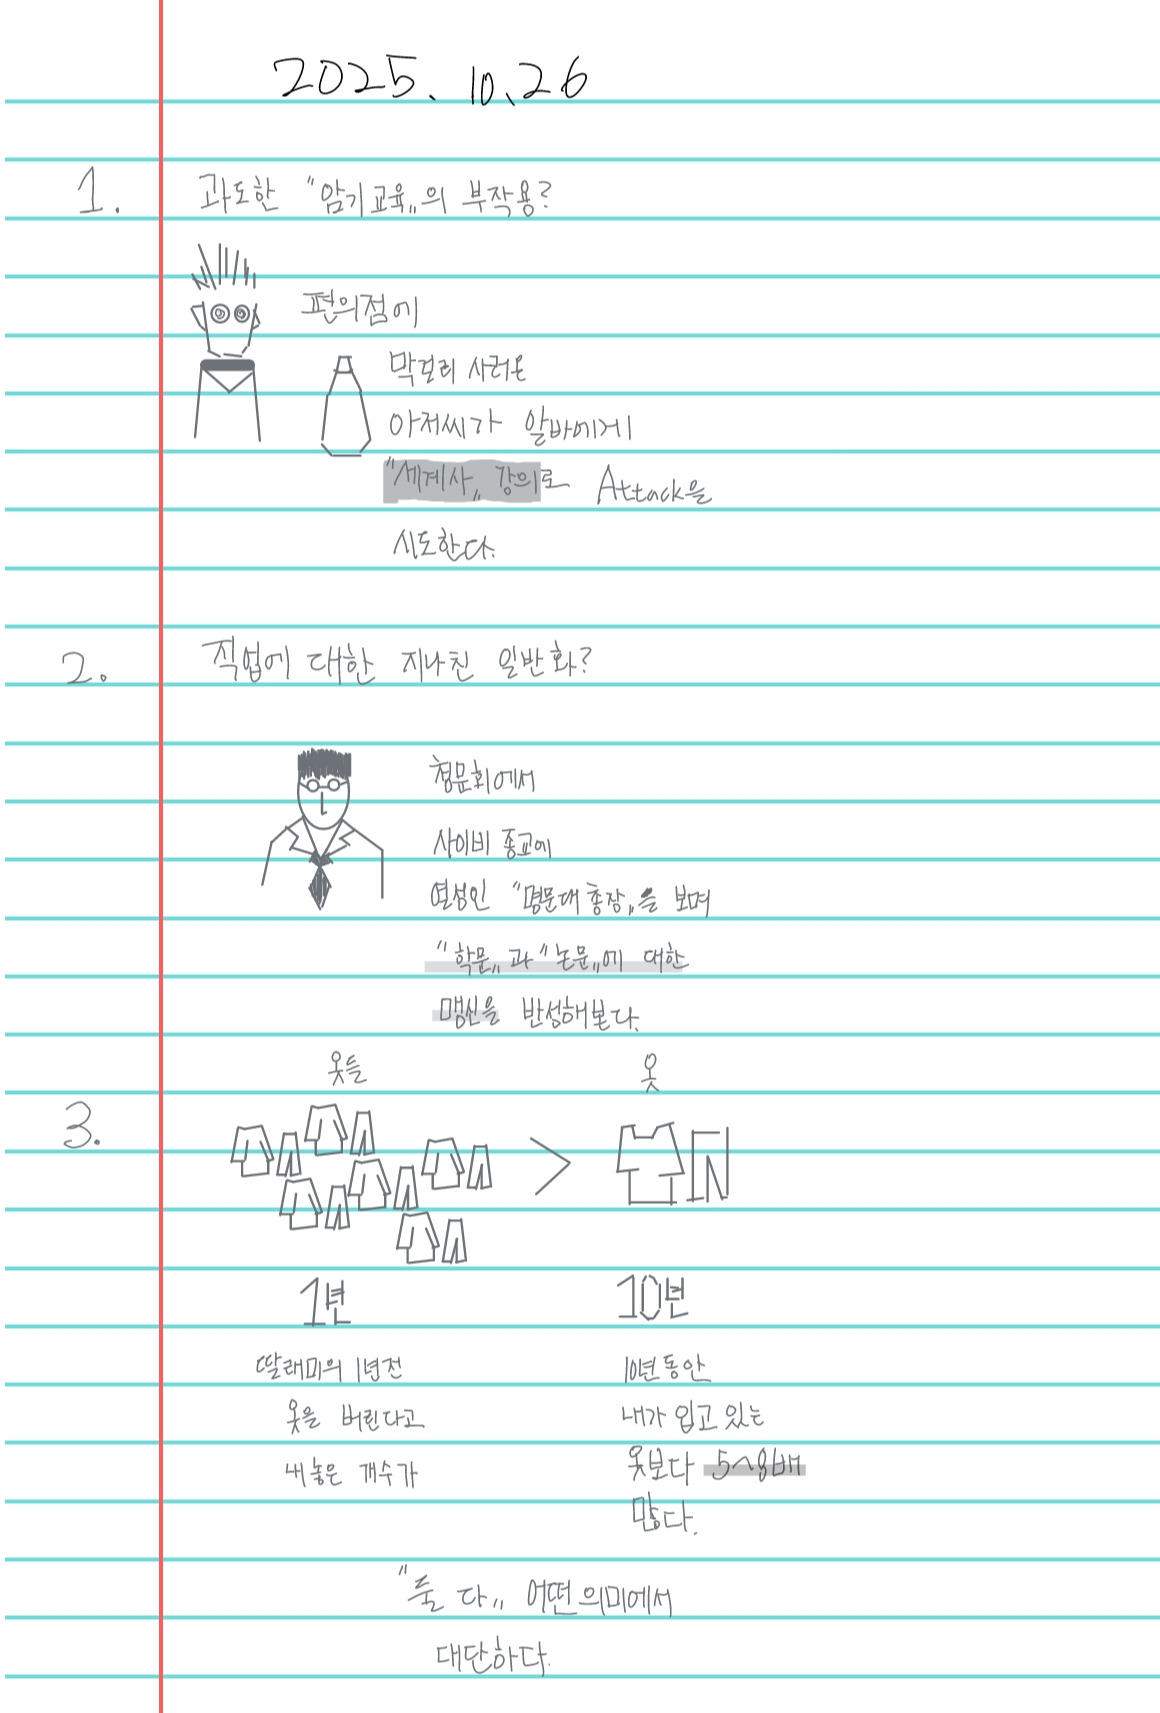 2025. 10. 26
1. 과도한 "암기교육„의 부작용?
편의점에
막걸리 사러온
아저씨가 알바에게
"세계사„ 강의로 Attack을
시도한다.
2. 직업에 대한 지나친 일반화?
청문회에서
사이비 종교에
열성인 "명문대 총장„을 보며
"학문„과 "논문„에 대한
맹신을 반성해본다.
옷들 옷
3. >
1년 10년
딸래미의 1년전
옷을 버린다고
내놓은 개수가
10년동안
내가 입고 있는
옷보다 5~8배
많다.
"둘 다„ 어떤의미에서
대단하다.